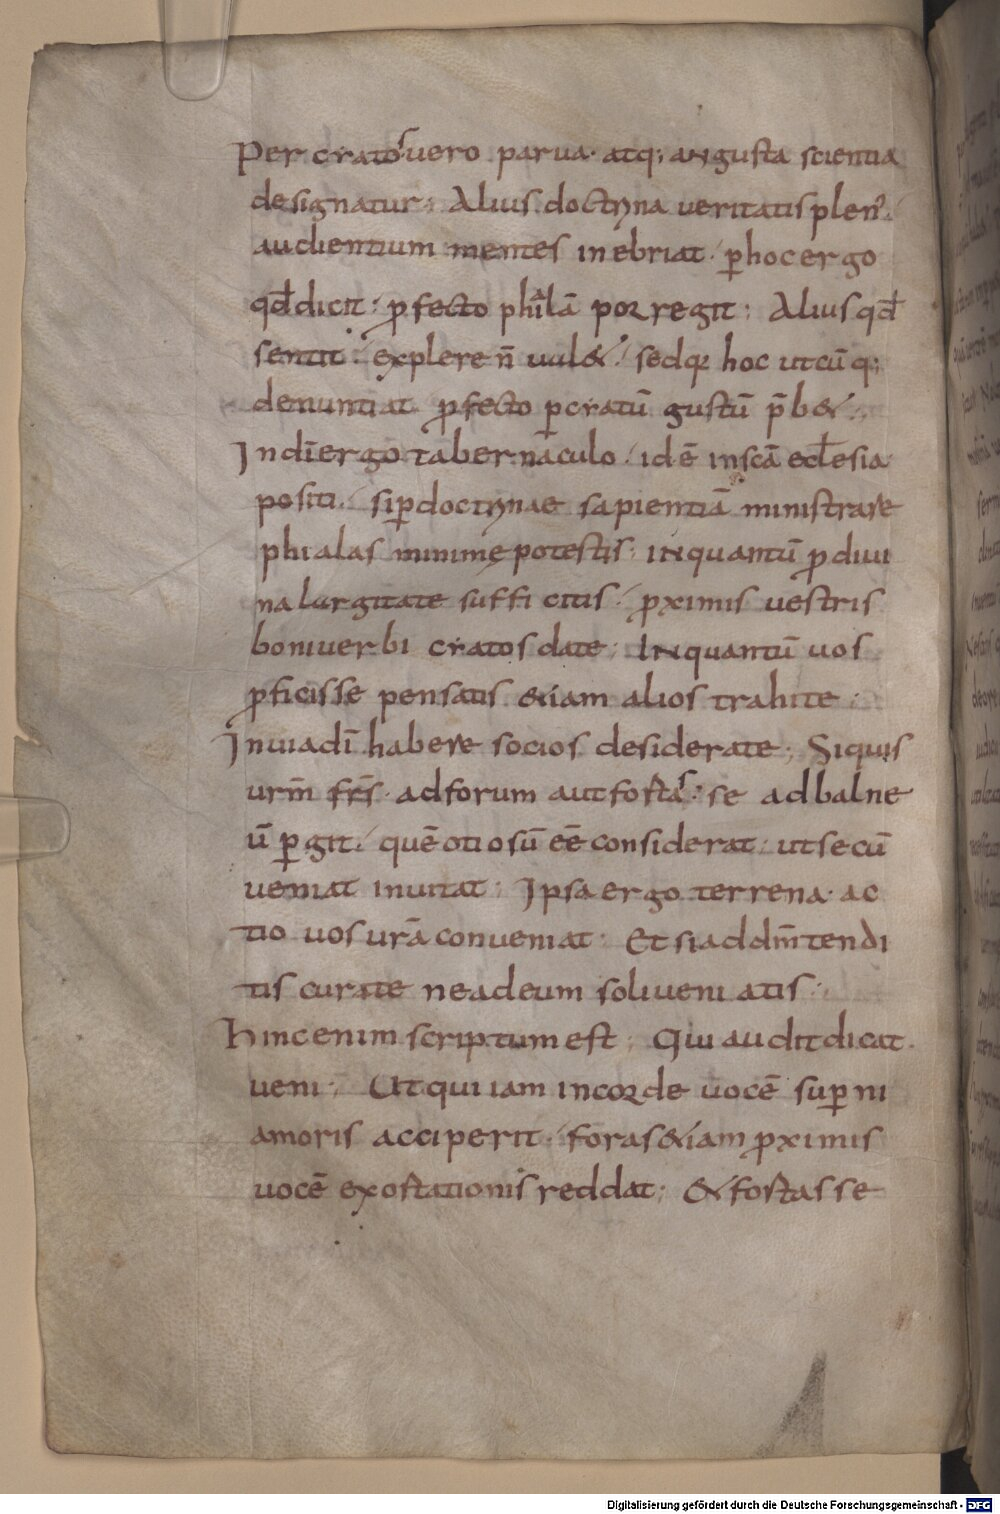 Per crato ſ uero parua· atq; anguſta scientia
deſignatur; Alius doctryna ueritatiſ plen᾿
audientium mentes inebriat· p̱hoc ergo
qđ dicit; ꝓfecto phialā porregit; Alius qđ
sentit· explere n̄ uul&· sedq; hoc utcūq;
denuntiat· ꝓfecto ꝑcratū guſtū p̄b&·
In dī ergo tabernaculo· idē inscā ecłesia
positi· si ꝑdoctrynae sapientiā miniſtrare
phialas minimę poteſtis; inquantū ꝓ diui
na largitate sufficitis· ꝓximis ueſtris
boni uerbi cratos date; Inquantū uos
ꝓficisse pensatis &iam alios trahite·
In uia dī habere socios desiderate; Siquis
urm̄ frs̄· ad forum aut fortaſ se ad balne
ū ꝑgit· quē otiosū eē considerat· ut secū
ueniat inuitat; Ipsa ergo terrena· ac
tio uos urā conueniat; Et si ad dm̄ tendi
tis curate ne ad eum soli ueniatis;
Hinc enim scriptum eſt; Qui audit dicat·
ueni; Ut qui iam in corde uocē suꝑni
amoris acciperit· foras &iam ꝓximis
uocē exoſtationis reddat; & foſtasse
Digitalisierung gefördert durch die Deutsche Forschungsgemeinschaft - DFG